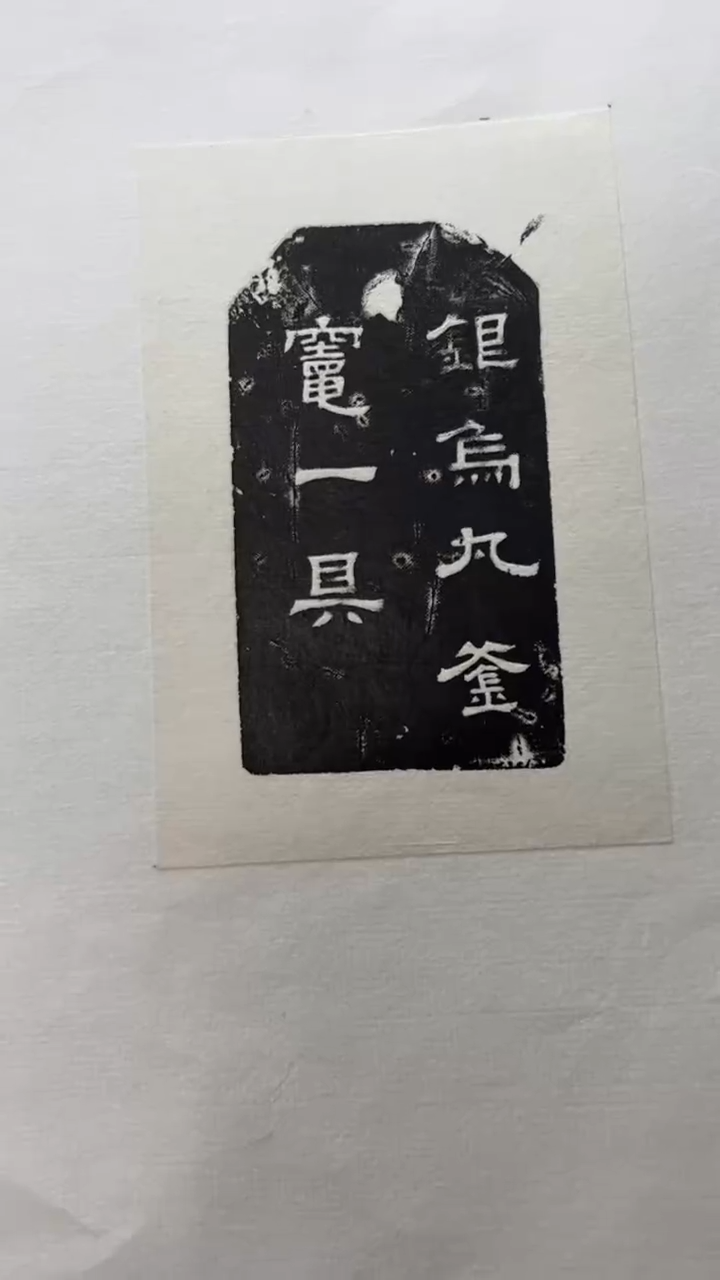 銀烏丸釜
竈一具